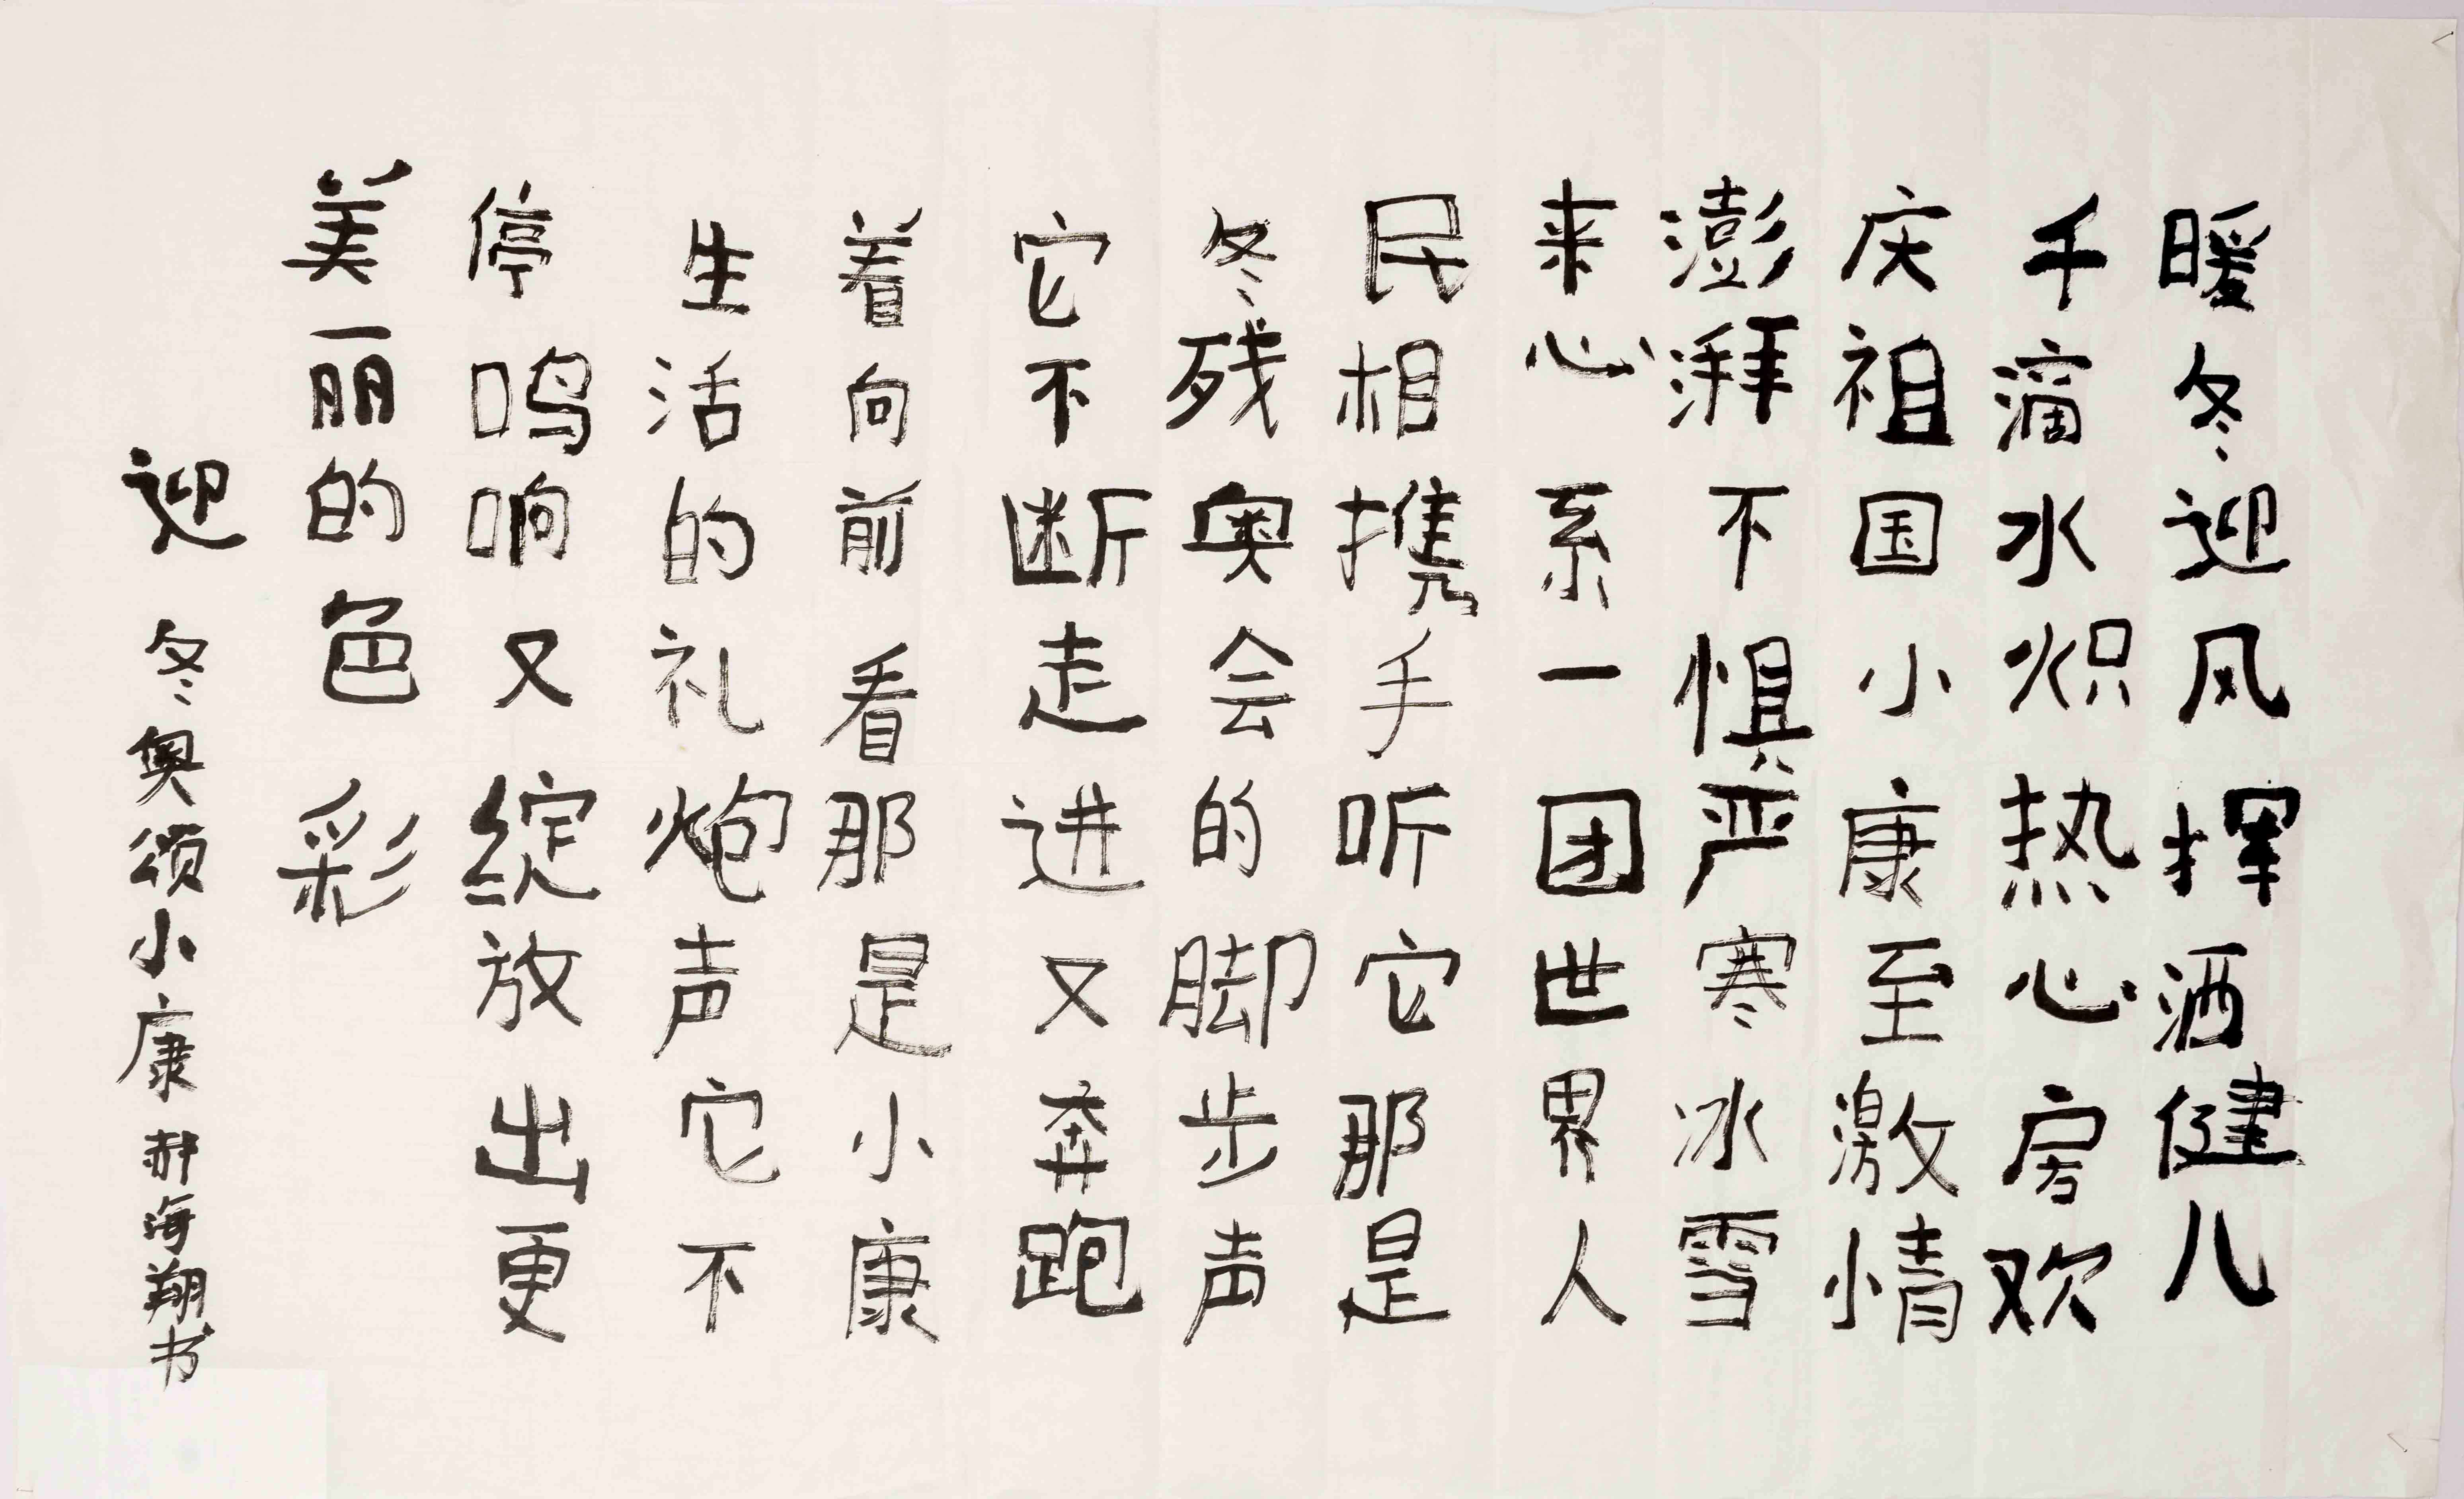 暖冬迎风挥洒健儿
千滴水炽热心房欢
庆祖国小康至激情
澎湃不惧严寒冰雪
来心系一团世界人
民相携手听它那是
冬残奥会的脚步声
它不断走进又奔跑
着向前看那是小康
生活的礼炮声它不
停鸣响又绽放出更
美丽的色彩
迎冬奥颂小康郝海翔书